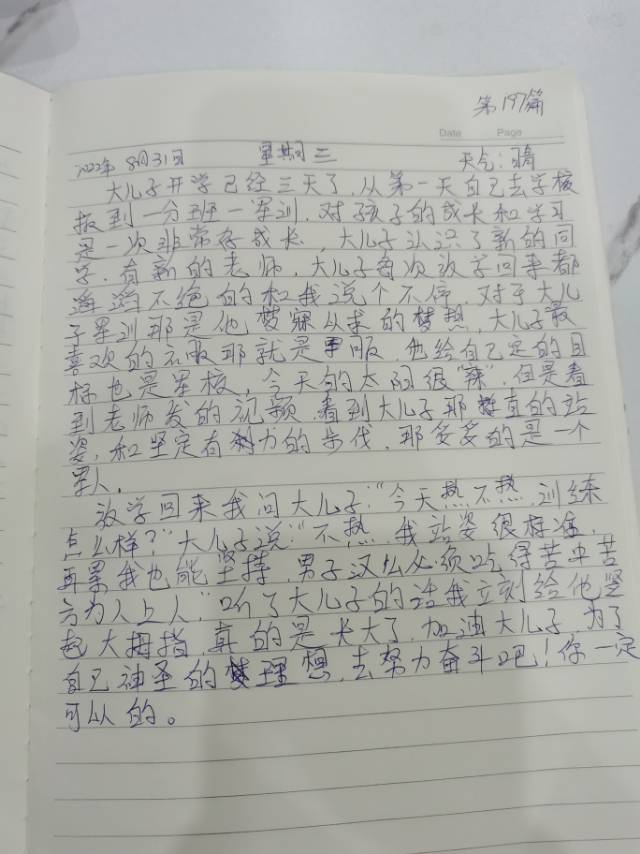 第197篇
Date Page
2022年 8月31日 星期三 天气:晴
大儿子开学已经三天了,从第一天自己去学校
报到一分班一军训,对孩子的成长和学习
是一次非常好成长,大儿子认识了新的同
学,有新的老师,大儿子每次放学回来都
滔滔不绝的和我说个不停,对于大儿
子军训那是他梦寐以求的梦,大儿子最
喜欢的衣服那就是军服,他给自己定的目
标也是军校,今天的太阳很"辣",但是看
到老师发的视频 看到大儿子那挺直的站
姿,和坚定有力的步伐,那妥妥的是一个
军人。
放学回来我问大儿子:"今天热不热,训练
怎么样?"大儿子说:"不热,我站姿很标准,
再累我也能坚持,男子汉么必须吃得苦中苦
方为人上人,"听了大儿子的话我立刻给他竖
起大拇指,真的是长大了,加油大儿子,为了
自己神圣的理想,去努力奋斗吧!你一定
可以的。